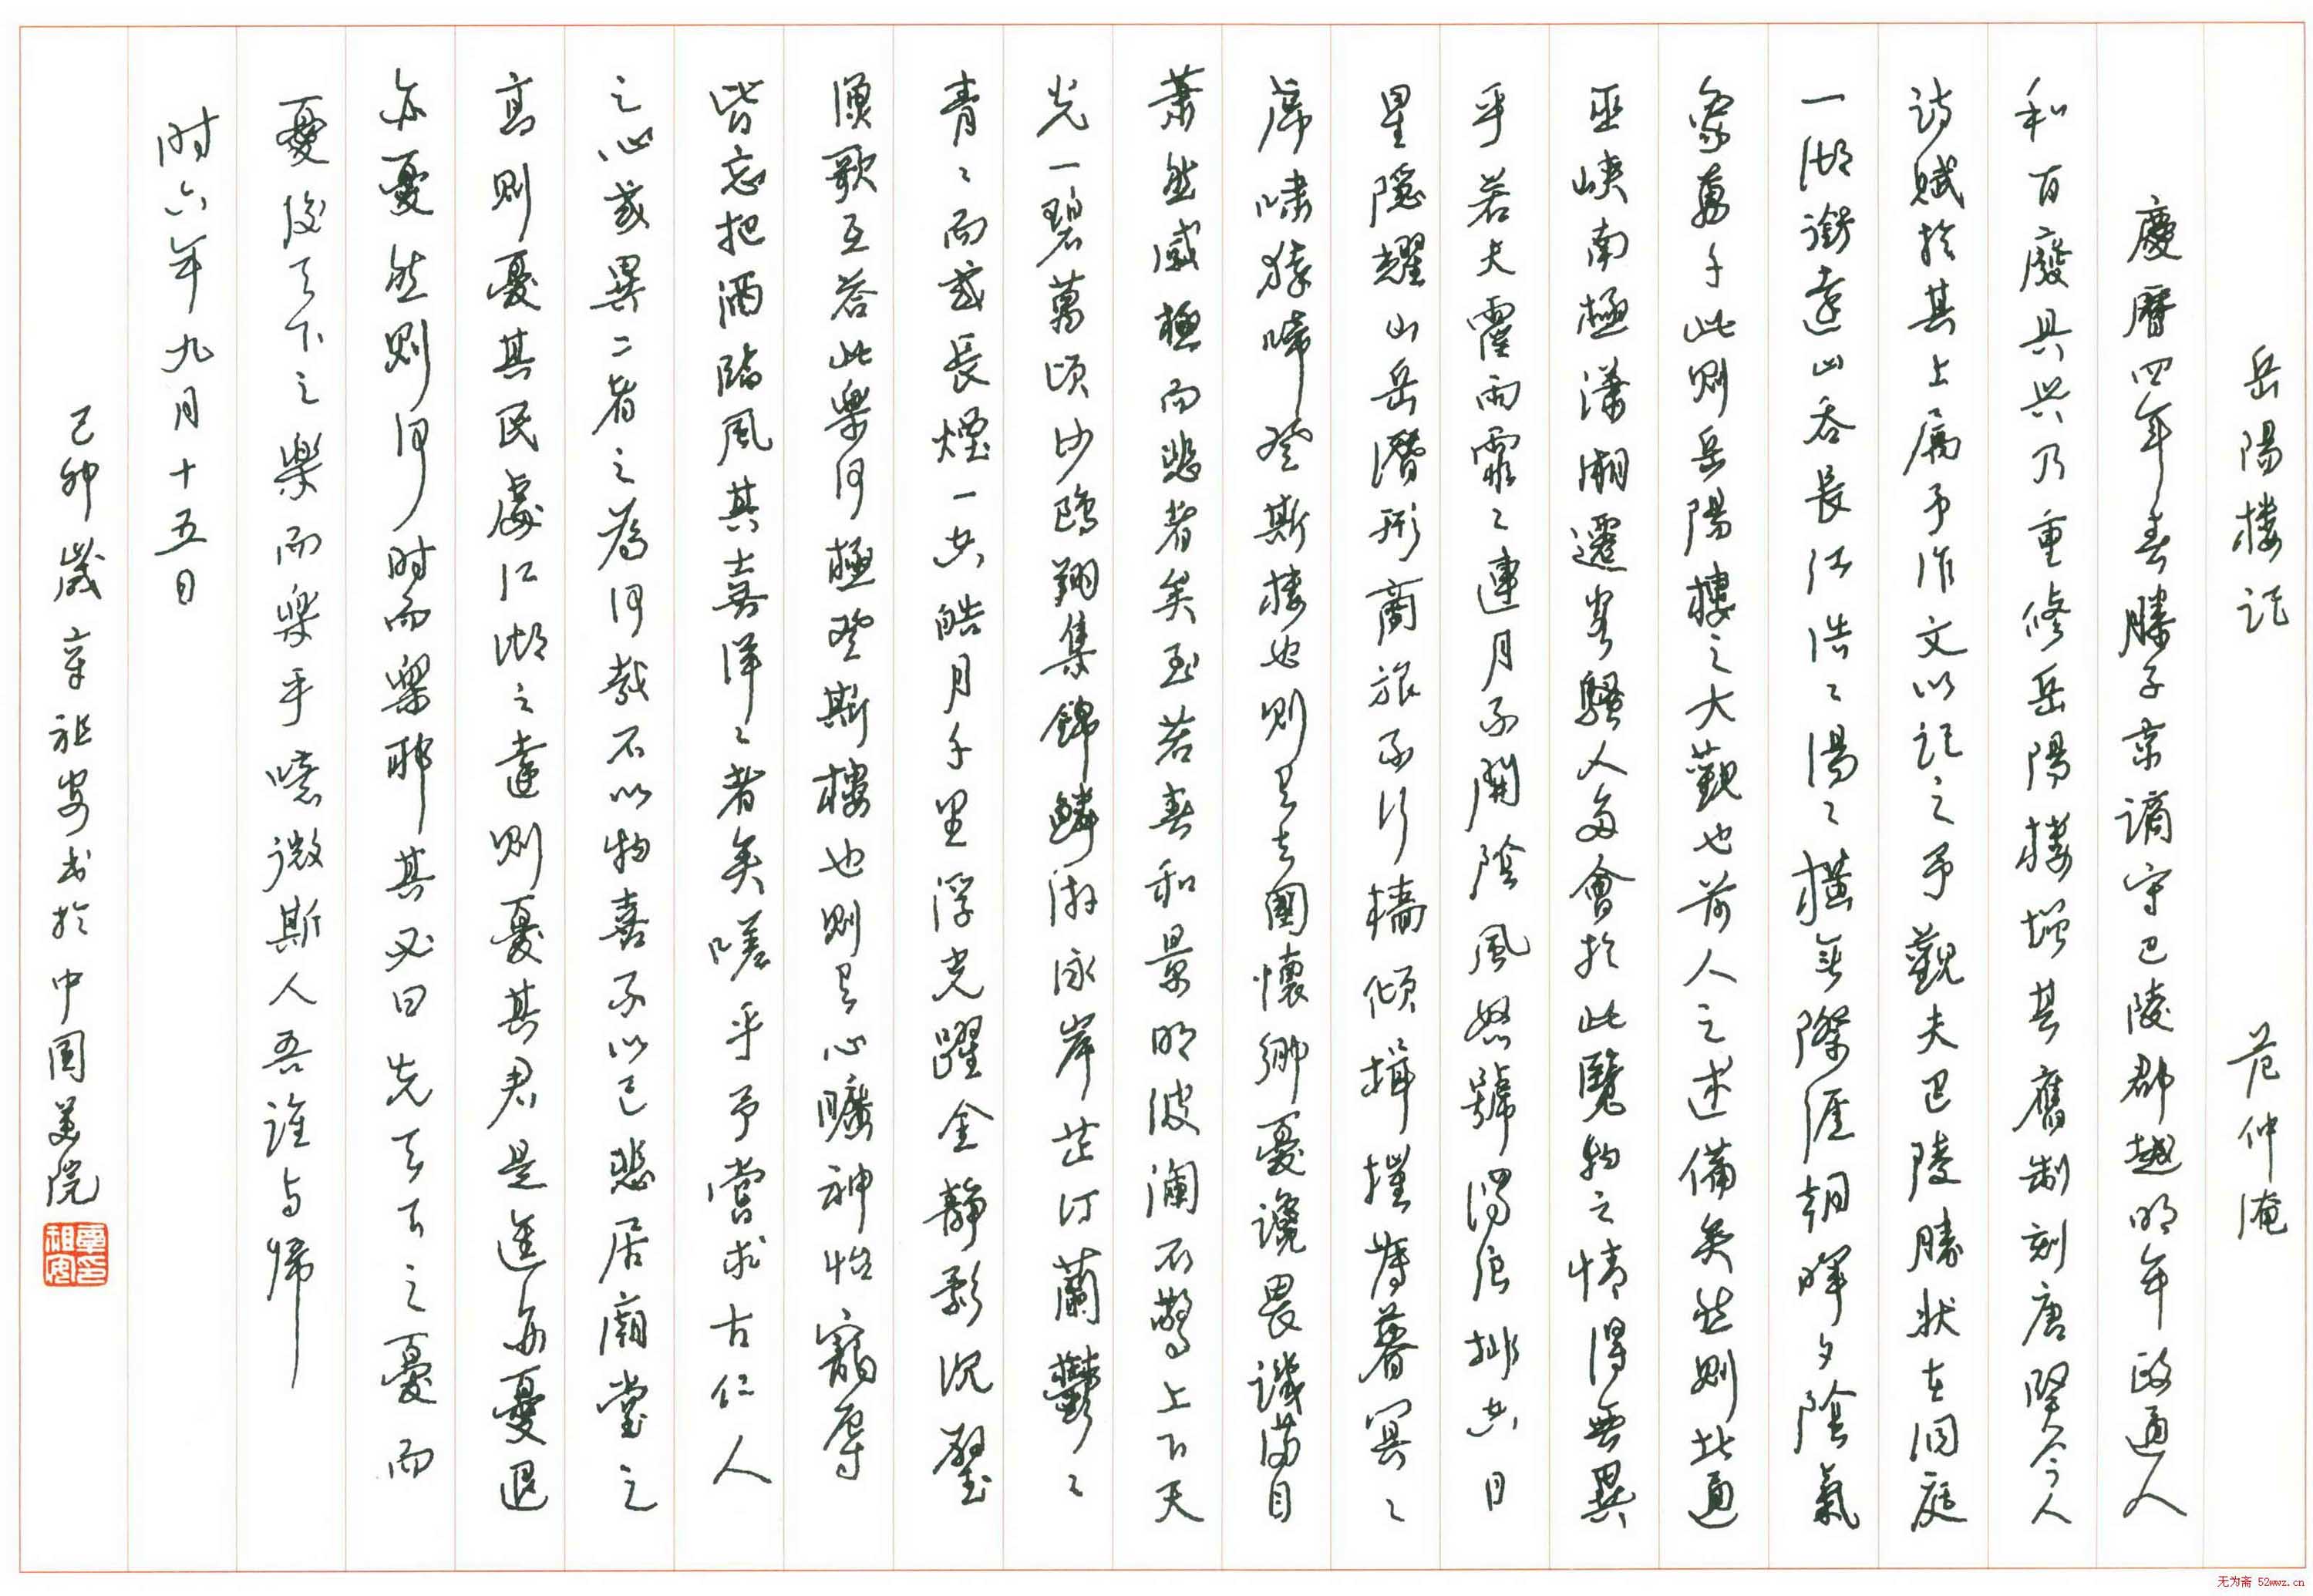 岳陽楼记 范仲淹
慶曆四年春滕子京谪守巴陵郡越明年政通人
和百廢具興乃重修岳陽楼增其舊制刻唐賢今人
诗赋於其上属予作文以记之予觀夫巴陵勝状在洞庭
一湖銜遠山吞長江浩々湯々橫無際涯朝暉夕陰氣
象萬千此則岳陽樓之大觀也前人之述備矣然則北通
巫峽南極瀟湘遷客騷人多會於此覽物之情得無異
乎若夫霪雨霏々連月不開陰風怒號濁浪排空日
星隱耀山岳潛形商旅不行檣傾楫摧薄暮冥々
虎嘯猿啼登斯楼也則有去國懷鄉憂讒畏譏满目
蕭然感極而悲者矣至若春和景明波澜不驚上下天
光一碧萬頃沙鷗翔集錦鱗游泳岸芷汀蘭鬱々
青々而或長煙一空皓月千里浮光躍金靜影沉璧
漁歌互答此樂何極登斯樓也則有心曠神怡寵辱
皆忘把酒臨風其喜洋々者矣嗟乎予嘗求古仁人
之心或異二者之為何哉不以物喜不以己悲居廟堂之
高則憂其民處江湖之遠則憂其君是進亦憂退
亦憂然則何时而樂耶其必曰先天下之憂而
憂後天下之樂而樂乎噫微斯人吾誰与歸
时六年九月十五日
己卯歲章祖安书於中国美院
章祖安印
无为斋 52wwz.cn